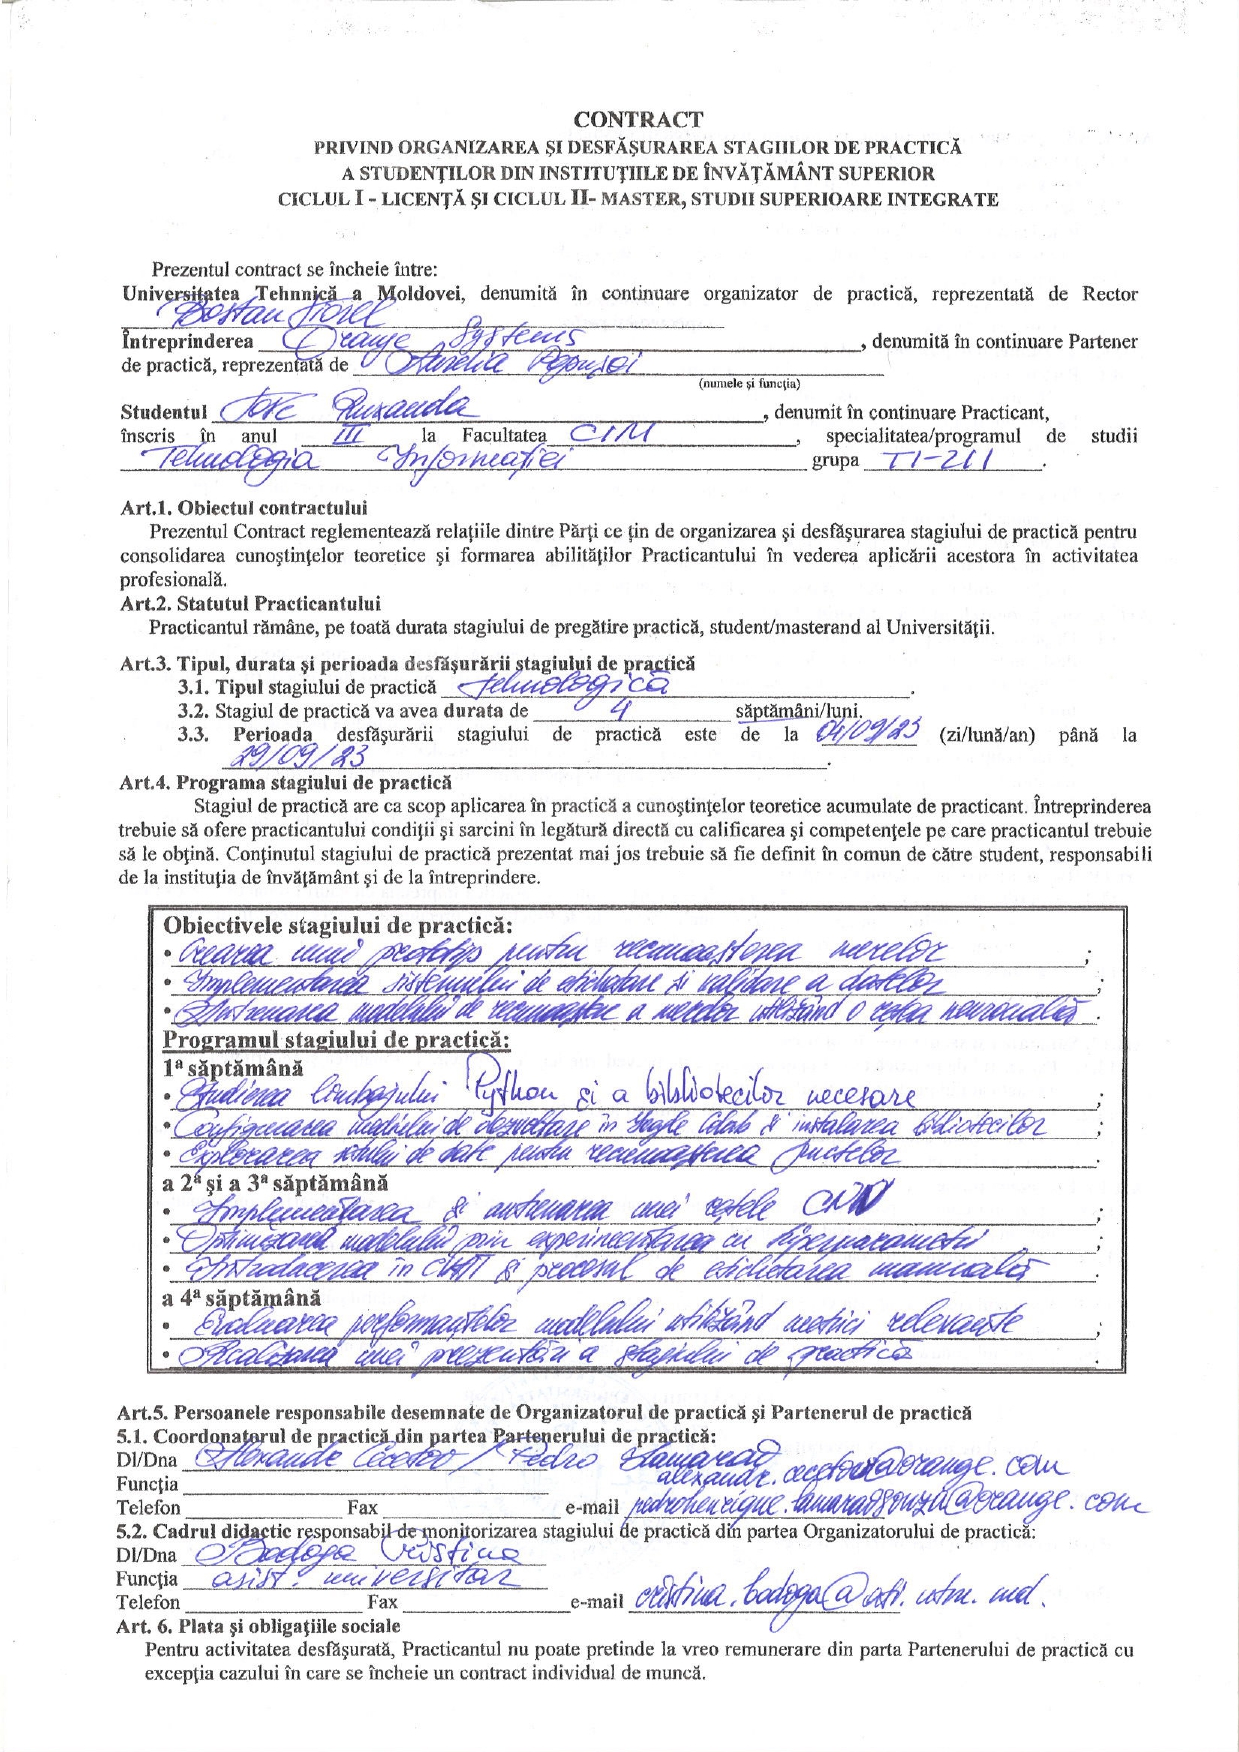 CONTRACT
PRIVIND ORGANIZAREA ŞI DESFĂŞURAREA STAGIILOR DE PRACTICĂ
A STUDENŢILOR DIN INSTITUŢIILE DE ÎNVĂŢĂMÂNT SUPERIOR
CICLUL I - LICENŢĂ ŞI CICLUL II- MASTER, STUDII SUPERIOARE INTEGRATE
Prezentul contract se încheie între:
Universitatea Tehnnică a Moldovei, denumită în continuare organizator de practică, reprezentată de Rector
Bostan Viorel
Întreprinderea Orange Systems, denumită în continuare Partener
de practică, reprezentată de Aurelia
(numele şi funcţia)
Studentul Ruxanda, denumit în continuare Practicant,
înscris în anul III la Facultatea CIM, specialitatea/programul de studii
Tehnologia Informaţiei grupa TI-211.
Art.1. Obiectul contractului
Prezentul Contract reglementează relaţiile dintre Părţi ce ţin de organizarea şi desfăşurarea stagiului de practică pentru
consolidarea cunoştinţelor teoretice şi formarea abilităţilor Practicantului în vederea aplicării acestora în activitatea
profesională.
Art.2. Statutul Practicantului
Practicantul rămâne, pe toată durata stagiului de pregătire practică, student/masterand al Universităţii.
Art.3. Tipul, durata şi perioada desfăşurării stagiului de practică
3.1. Tipul stagiului de practică tehnologică.
3.2. Stagiul de practică va avea durata de 4 săptămâni/luni.
3.3. Perioada desfăşurării stagiului de practică este de la 04/09/23 (zi/lună/an) până la
29/09/23.
Art.4. Programa stagiului de practică
Stagiul de practică are ca scop aplicarea în practică a cunoştinţelor teoretice acumulate de practicant. Întreprinderea
trebuie să ofere practicantului condiţii şi sarcini în legătură directă cu calificarea şi competenţele pe care practicantul trebuie
să le obţină. Conţinutul stagiului de practică prezentat mai jos trebuie să fie definit în comun de către student, responsabili
de la instituţia de învăţământ şi de la întreprindere.
Obiectivele stagiului de practică:
• Crearea unui prototip pentru recunoaşterea merelor;
• Implementarea sistemului de etichetare şi validare a datelor;
• Antrenarea modelului de recunoaştere a merelor utilizând o reţea neuronală.
Programul stagiului de practică:
1ª săptămână
• Studierea limbajului Python şi a bibliotecilor necesare;
• Configurarea mediului de dezvoltare în Google Colab şi instalarea bibliotecilor;
• Explorarea setului de date pentru recunoaşterea fructelor.
a 2ª şi a 3ª săptămână
• Implementarea şi antrenarea unei reţele CNN;
• Optimizarea modelului prin experimentarea cu hiperparametri;
• Introducerea în CVAT şi procesul de etichetarea manuală.
a 4ª săptămână
• Evaluarea performanţelor modelului utilizând metrici relevante;
• Realizarea unei prezentări a stagiului de practică.
Art.5. Persoanele responsabile desemnate de Organizatorul de practică şi Partenerul de practică
5.1. Coordonatorul de practică din partea Partenerului de practică:
Dl/Dna Alexandr / Pedro
Funcţia
Telefon Fax e-mail
5.2. Cadrul didactic responsabil de monitorizarea stagiului de practică din partea Organizatorului de practică:
Dl/Dna Badoga Cristina
Funcţia asist. universitar
Telefon Fax e-mail cristina.badoga@ati.utm.md.
Art. 6. Plata şi obligaţiile sociale
Pentru activitatea desfăşurată, Practicantul nu poate pretinde la vreo remunerare din parta Partenerului de practică cu
excepţia cazului în care se încheie un contract individual de muncă.